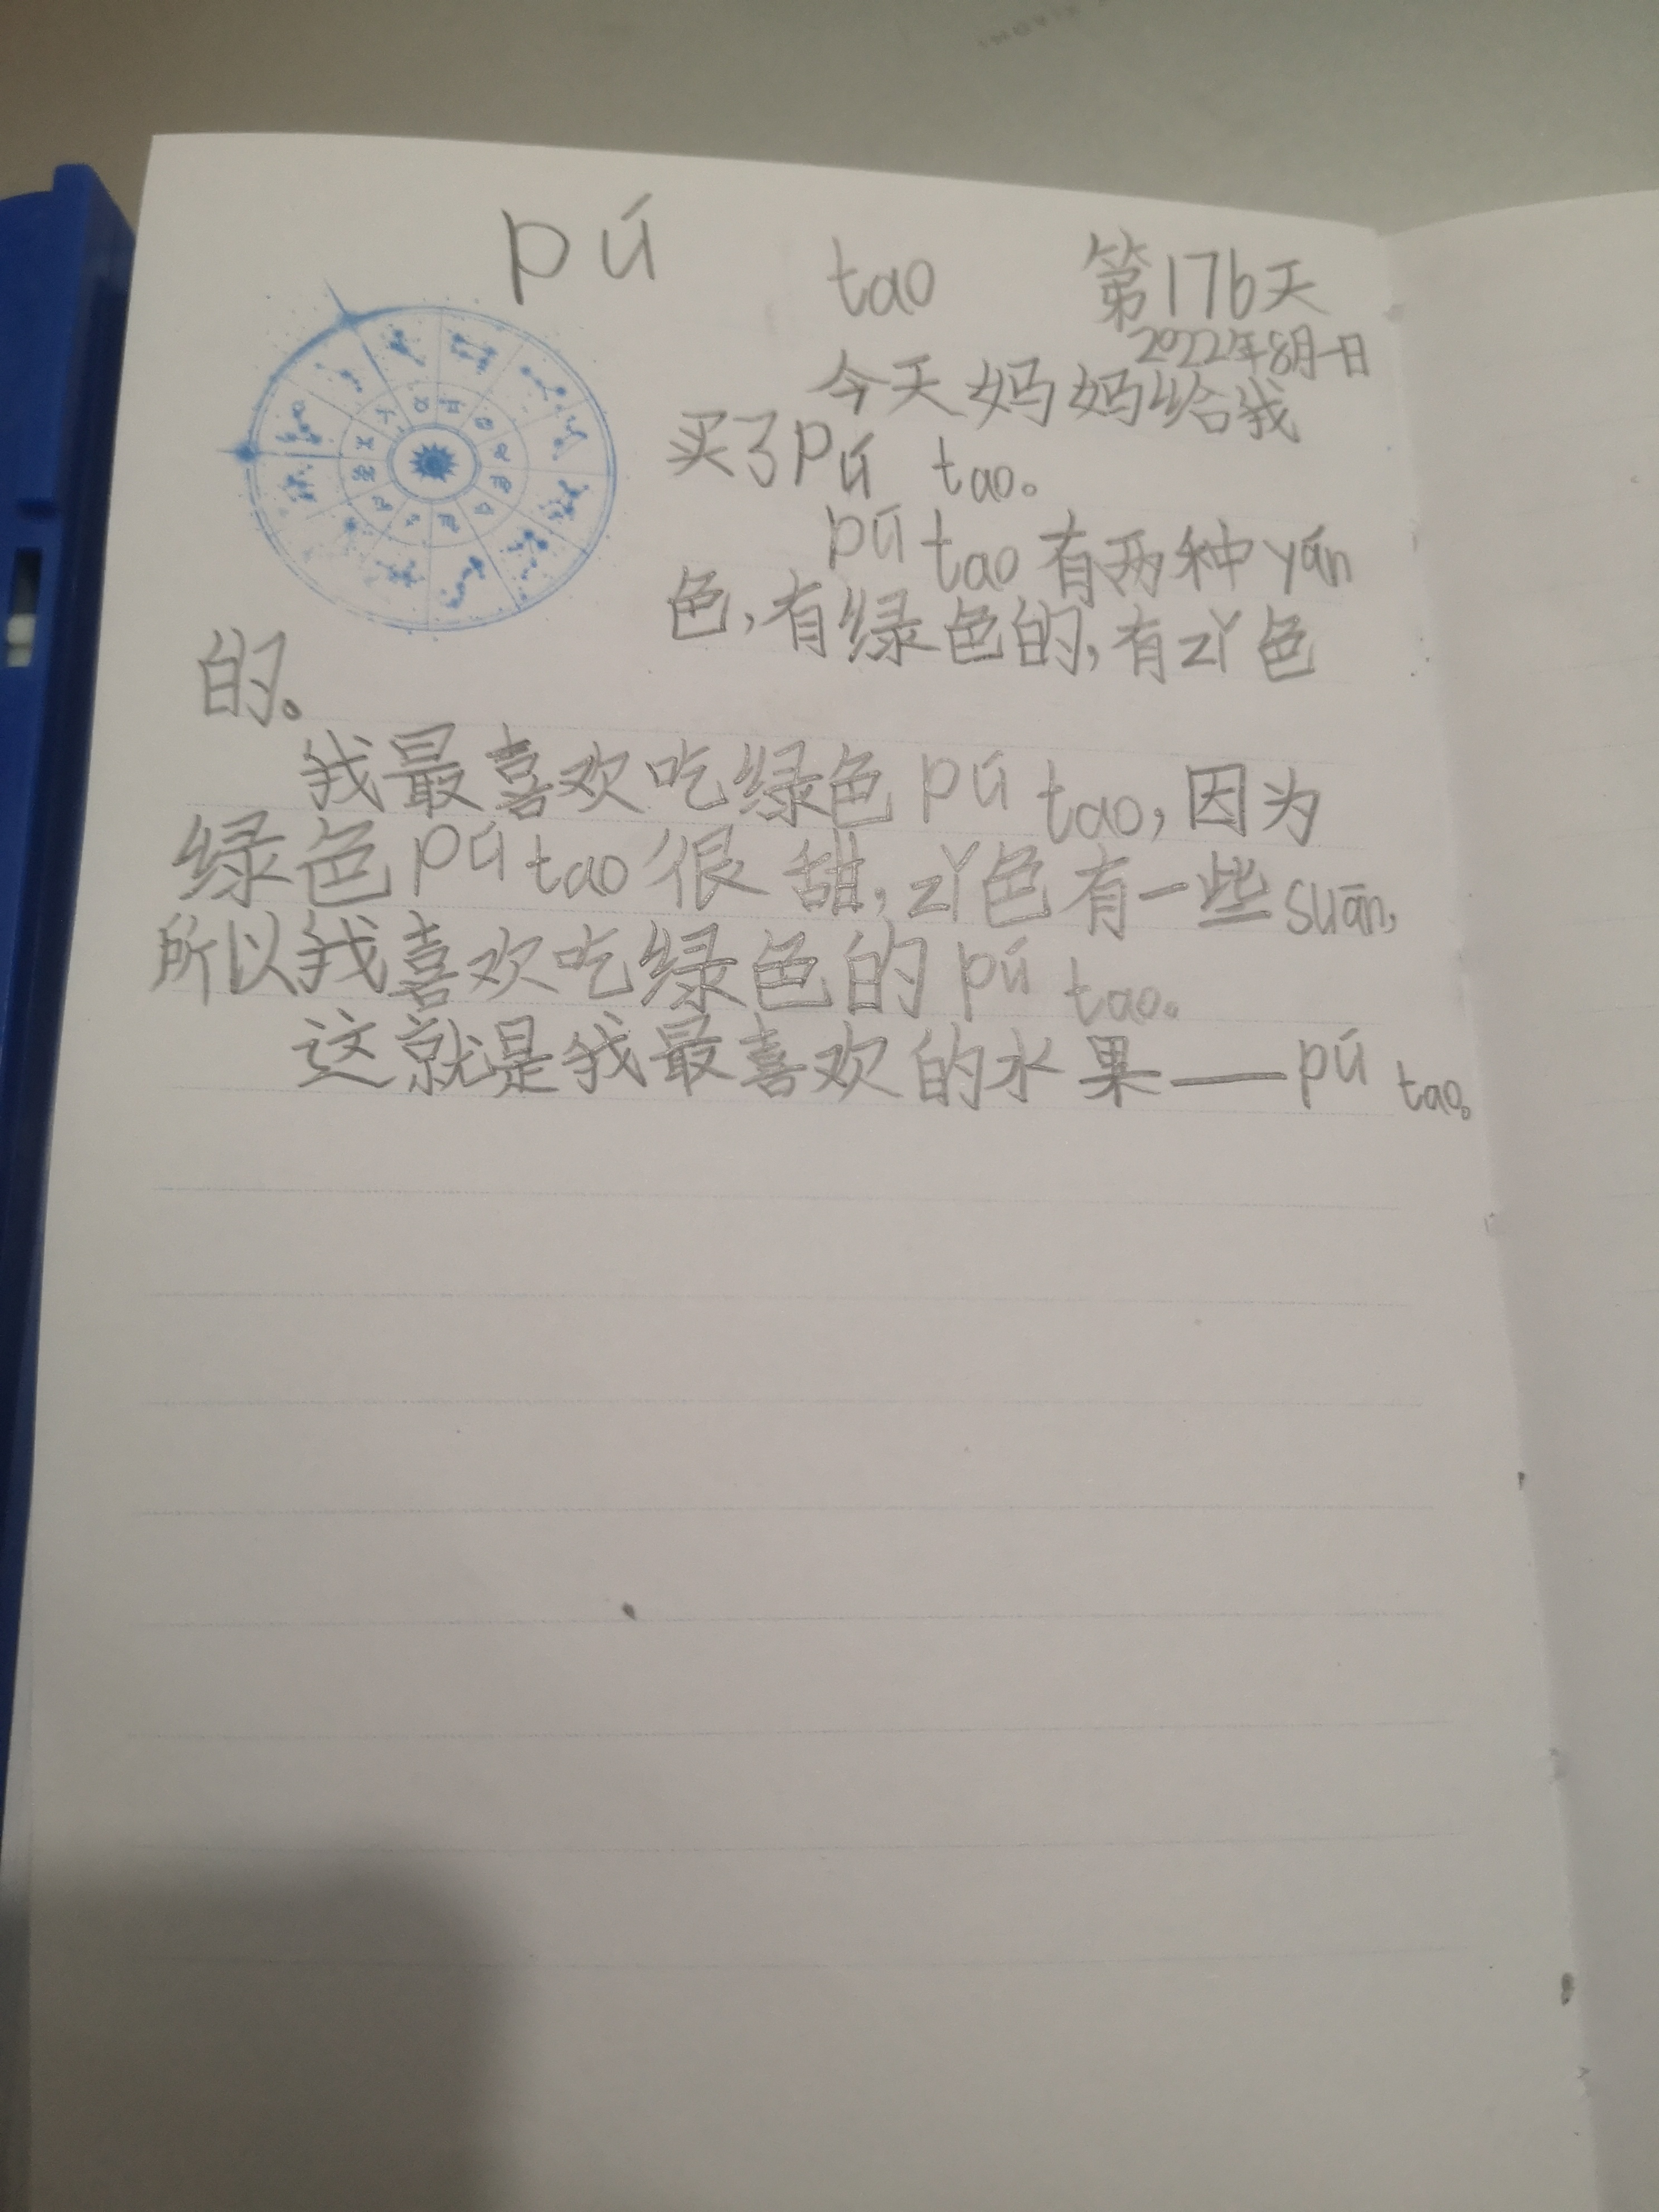 pú tao 第176天
2022年8月一日
今天妈妈给我
买了pú tao。
pú tao有两种yán
色,有绿色的,有zǐ色
的。
我最喜欢吃绿色pú tao,因为
绿色pú tao很甜,zǐ色有一些suān,
所以我喜欢吃绿色的pú tao。
这就是我最喜欢的水果——pú tao。